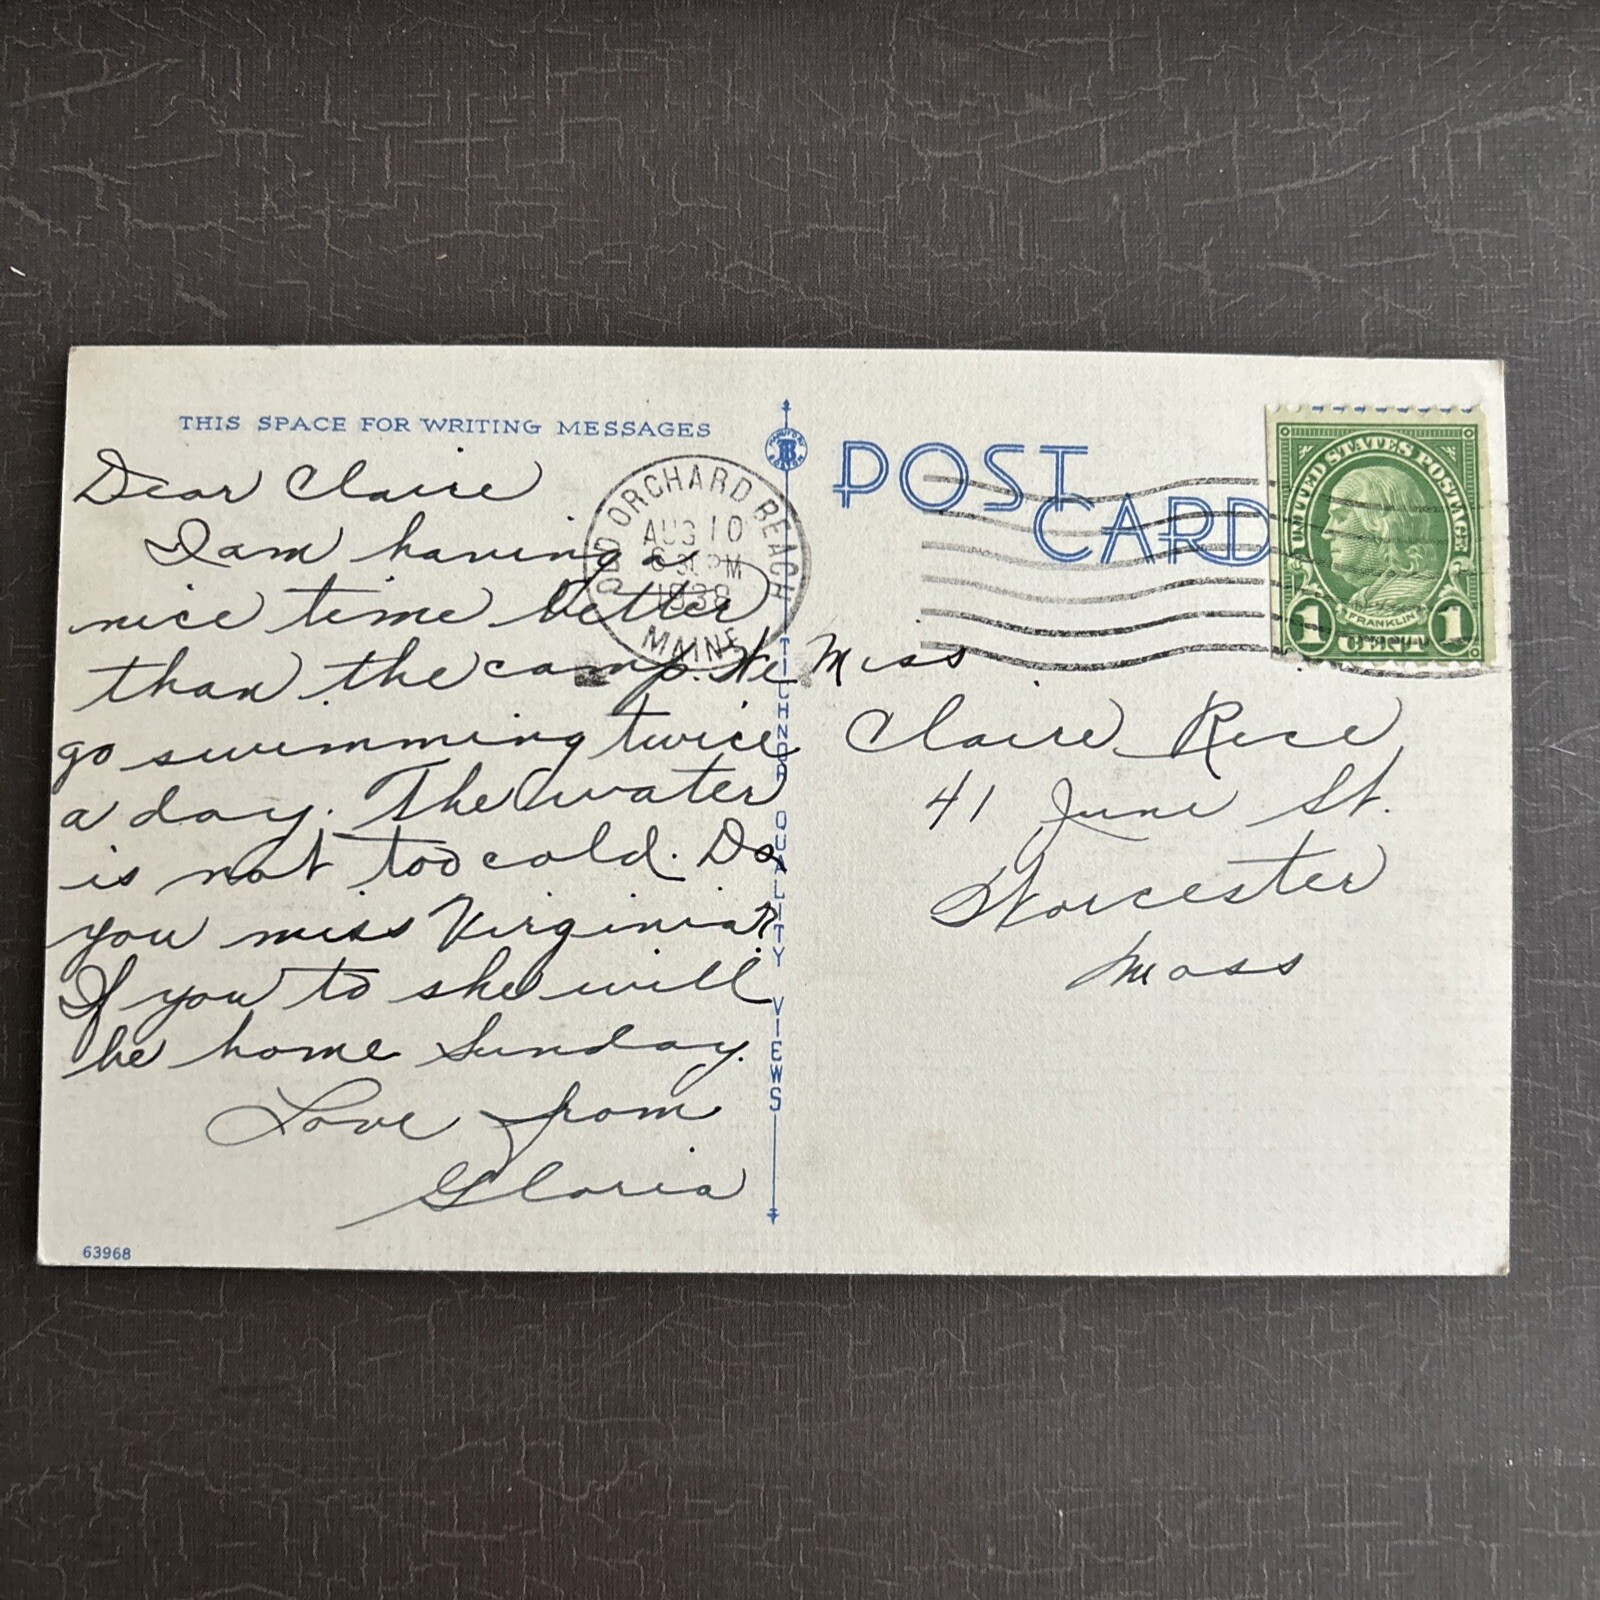 THIS SPACE FOR WRITING MESSAGES
Dear Claire
I am having a
nice time better
than the camp. We
go swimming twice
a day. The water
is not too cold. Do
you miss Virginia?
If you to she will
be home Sunday.
Love from
Gloria
63968
OLD ORCHARD BEACH
AUG 10
6 30 PM
1938
MAINE
TICHNOR QUALITY VIEWS
POST
CARD
UNITED STATES POSTAGE
FRANKLIN
1 CENT 1
Miss
Claire Rice
41 June St.
Worcester
Mass